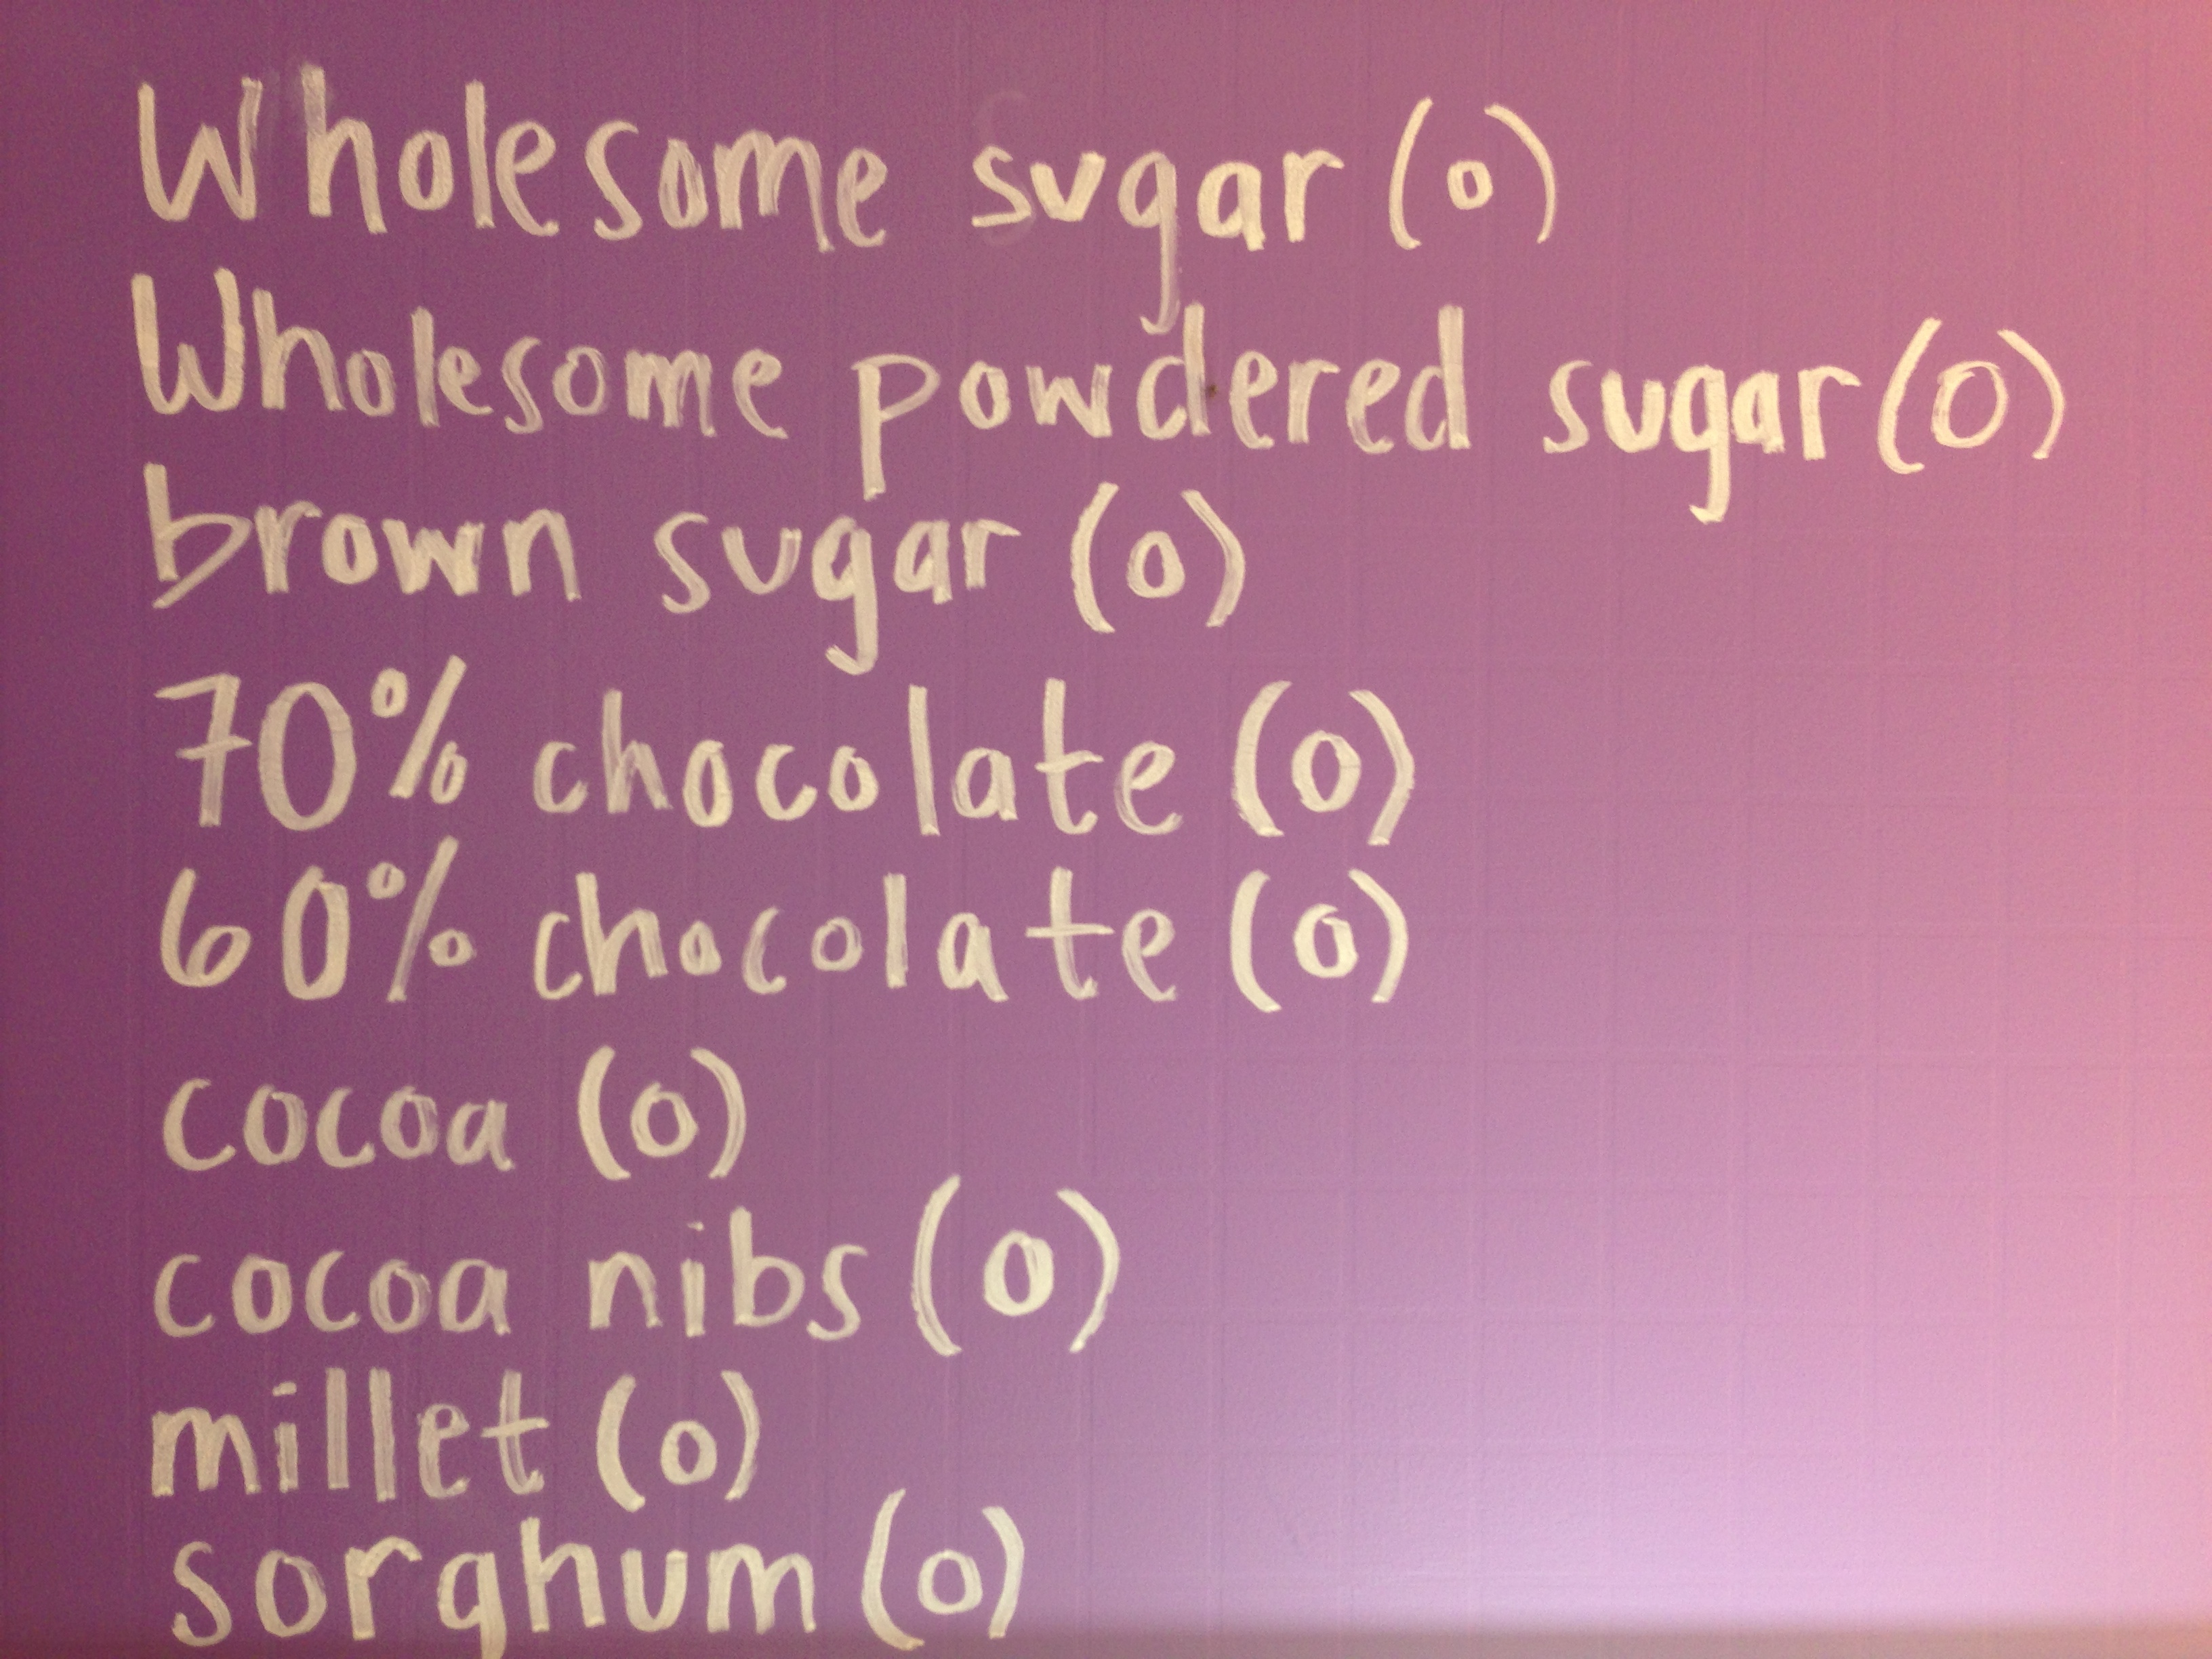 Wholesome sugar (o)
Wholesome powdered sugar (o)
brown sugar (o)
70% chocolate (o)
60% chocolate (o)
cocoa (o)
cocoa nibs (o)
millet (o)
sorghum (o)